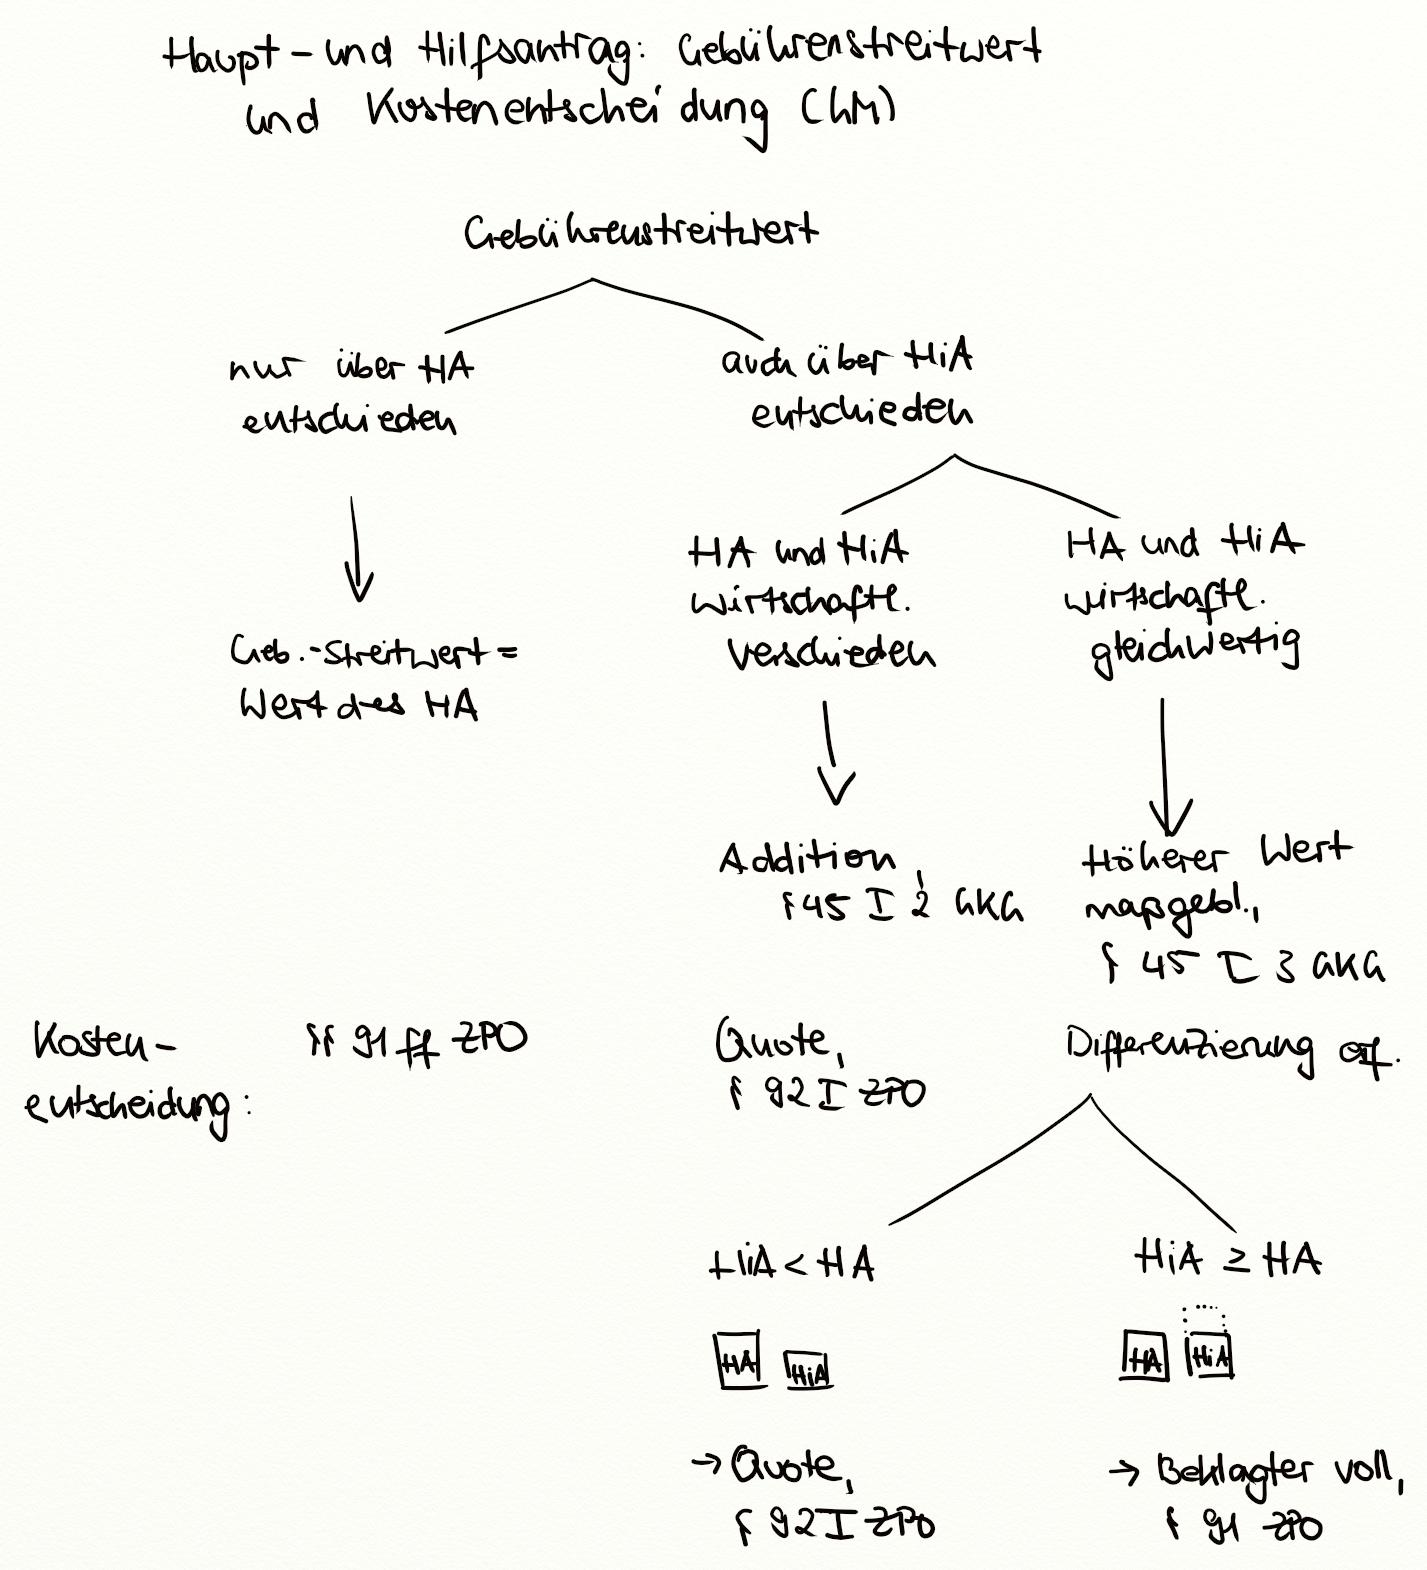 Haupt- und Hilfsantrag: Gebührenstreitwert
und Kostenentscheidung (hM)
Gebührenstreitwert
nur über HA
entschieden
auch über HiA
entschieden
HA und HiA
wirtschaftl.
verschieden
HA und HiA
wirtschaftl.
gleichwertig
Geb.-Streitwert =
Wert des HA
Addition,
§ 45 I 2 GKG
Höherer Wert
maßgebl.,
§ 45 I 3 GKG
Kosten-
entscheidung:
§§ 91 ff ZPO
Quote,
§ 92 I ZPO
Differenzierung
HiA < HA
HiA ≥ HA
HA
HiA
HA
HiA
→ Quote,
§ 92 I ZPO
→ Beklagter voll,
§ 91 ZPO